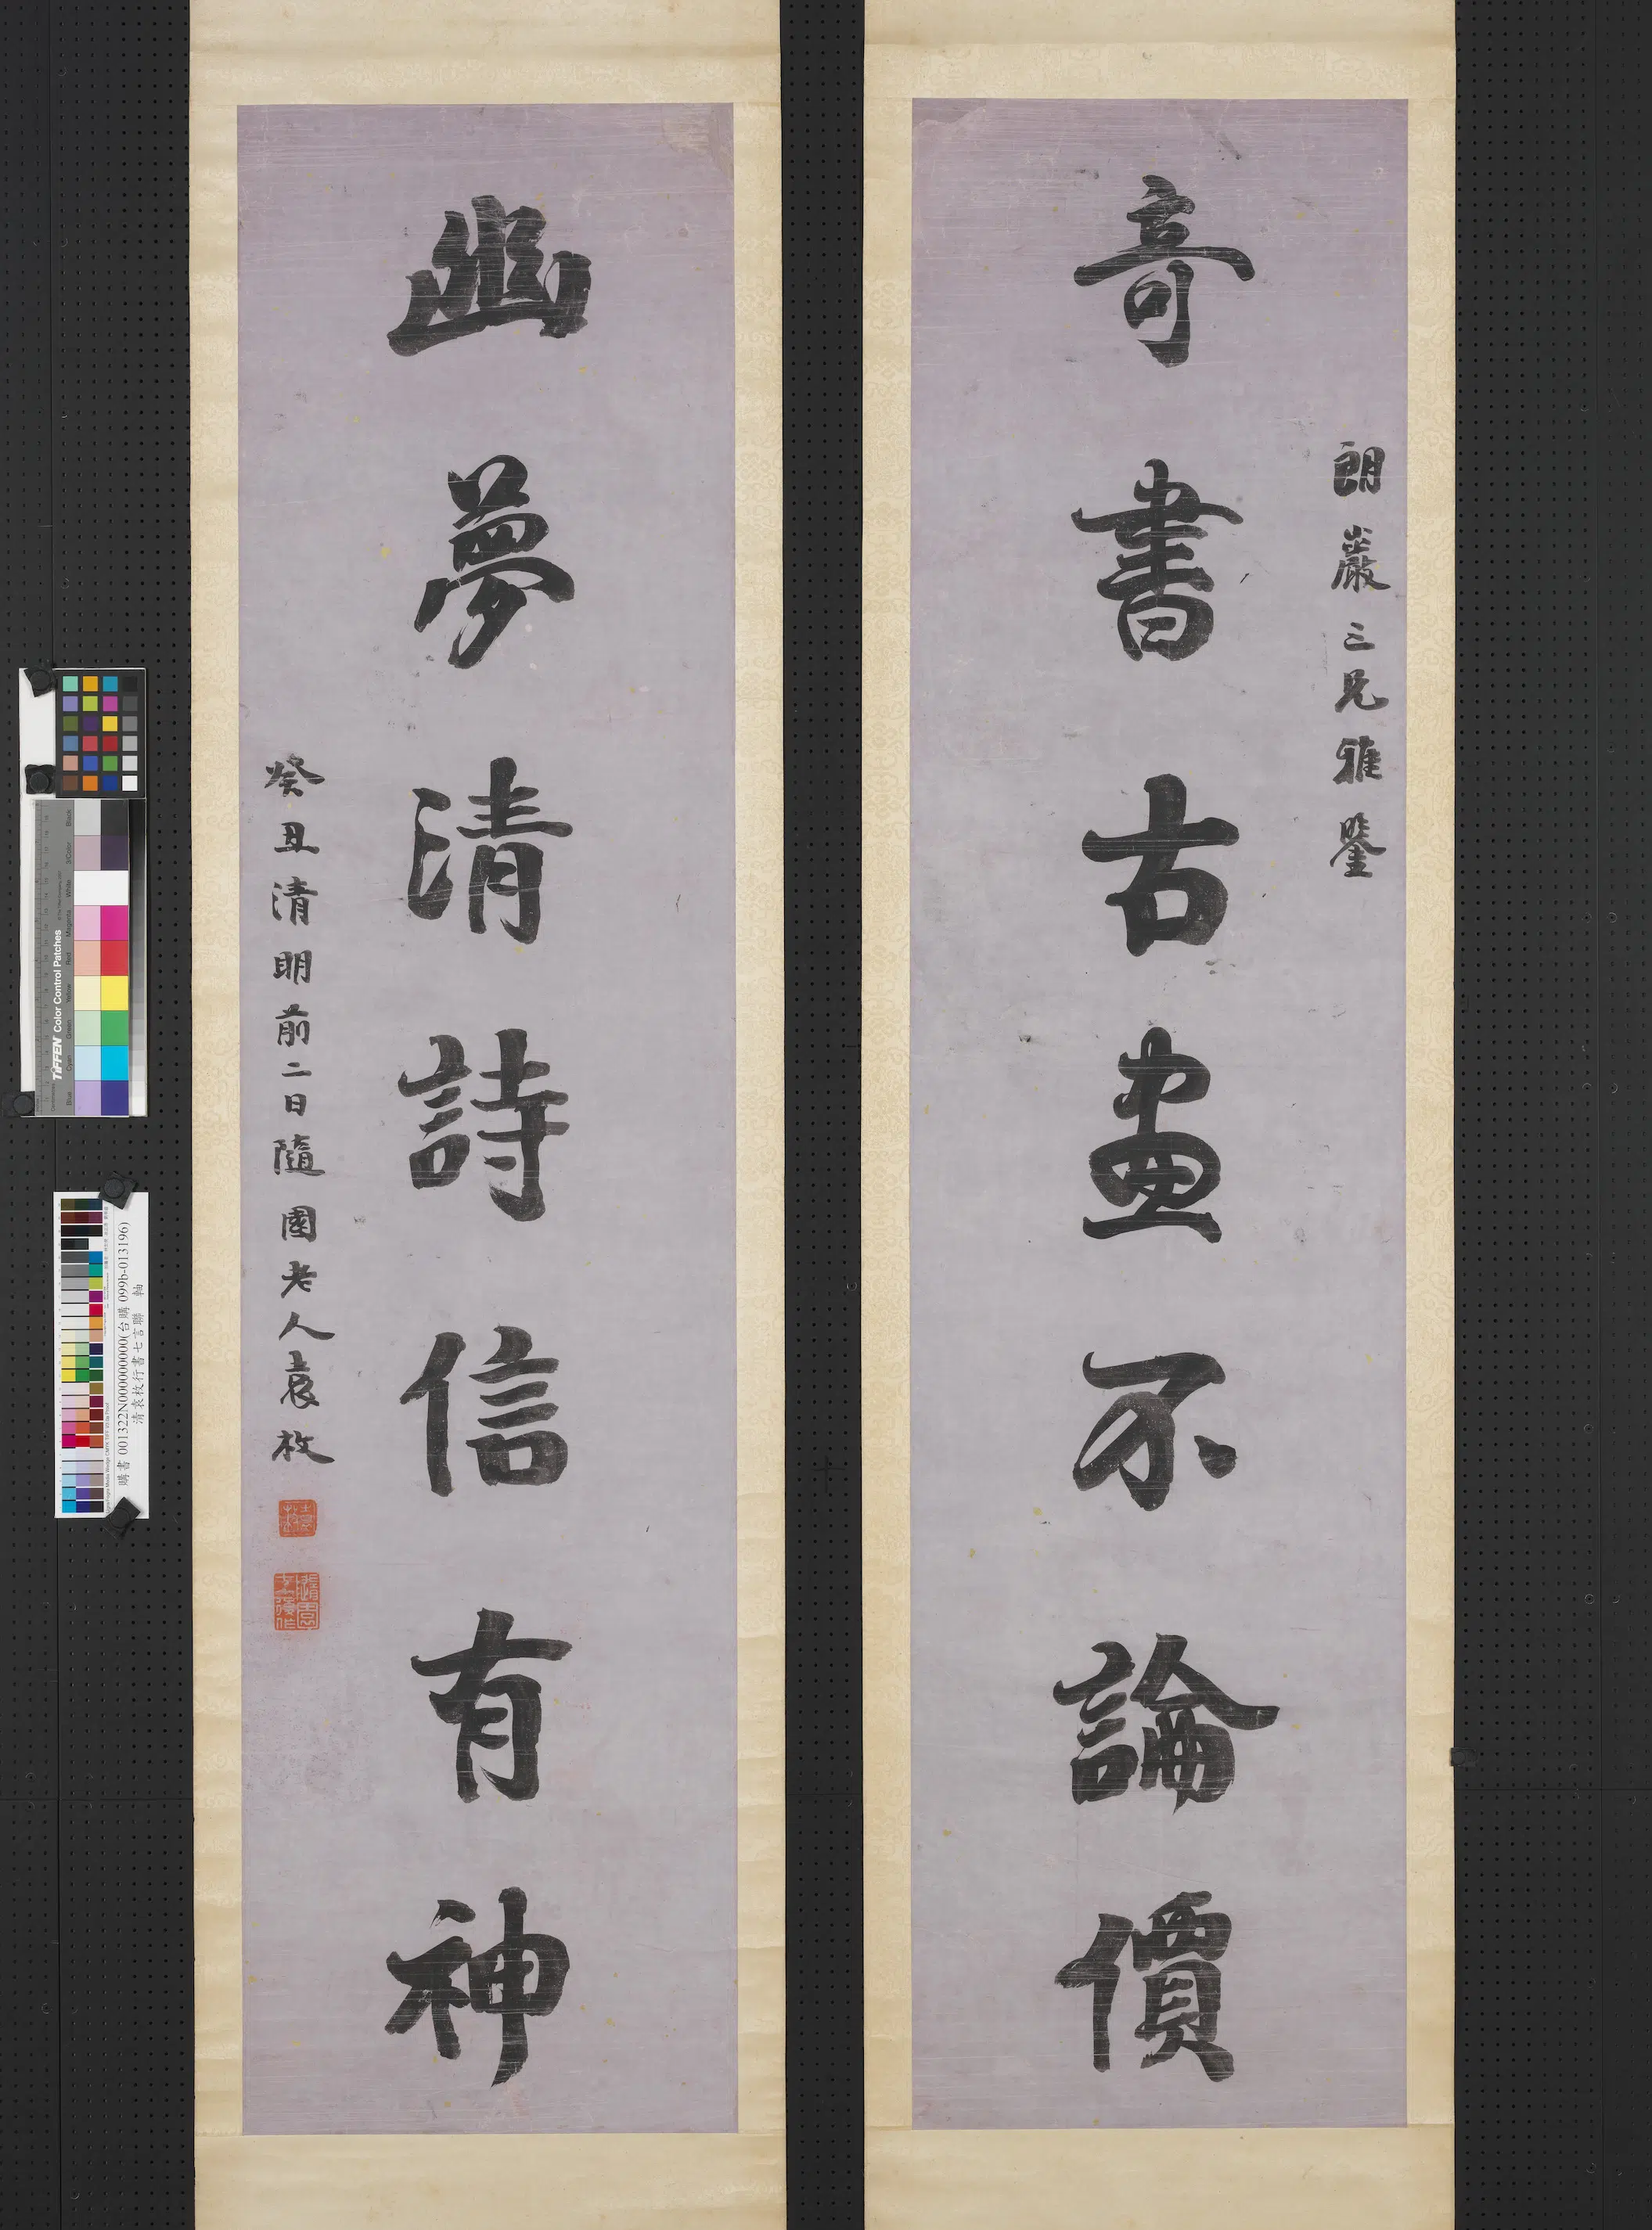 朗巖三兄雅鑒
奇書古畫不論價
幽夢清詩信有神
癸丑清明前二日隨園老人袁枚
TIFFEN Color Control Patches
Blue Cyan Green Yellow Red Magenta White 3/Color Black
購書 001322N000000000(台購 099b-013196)
清袁枚行書七言聯 軸